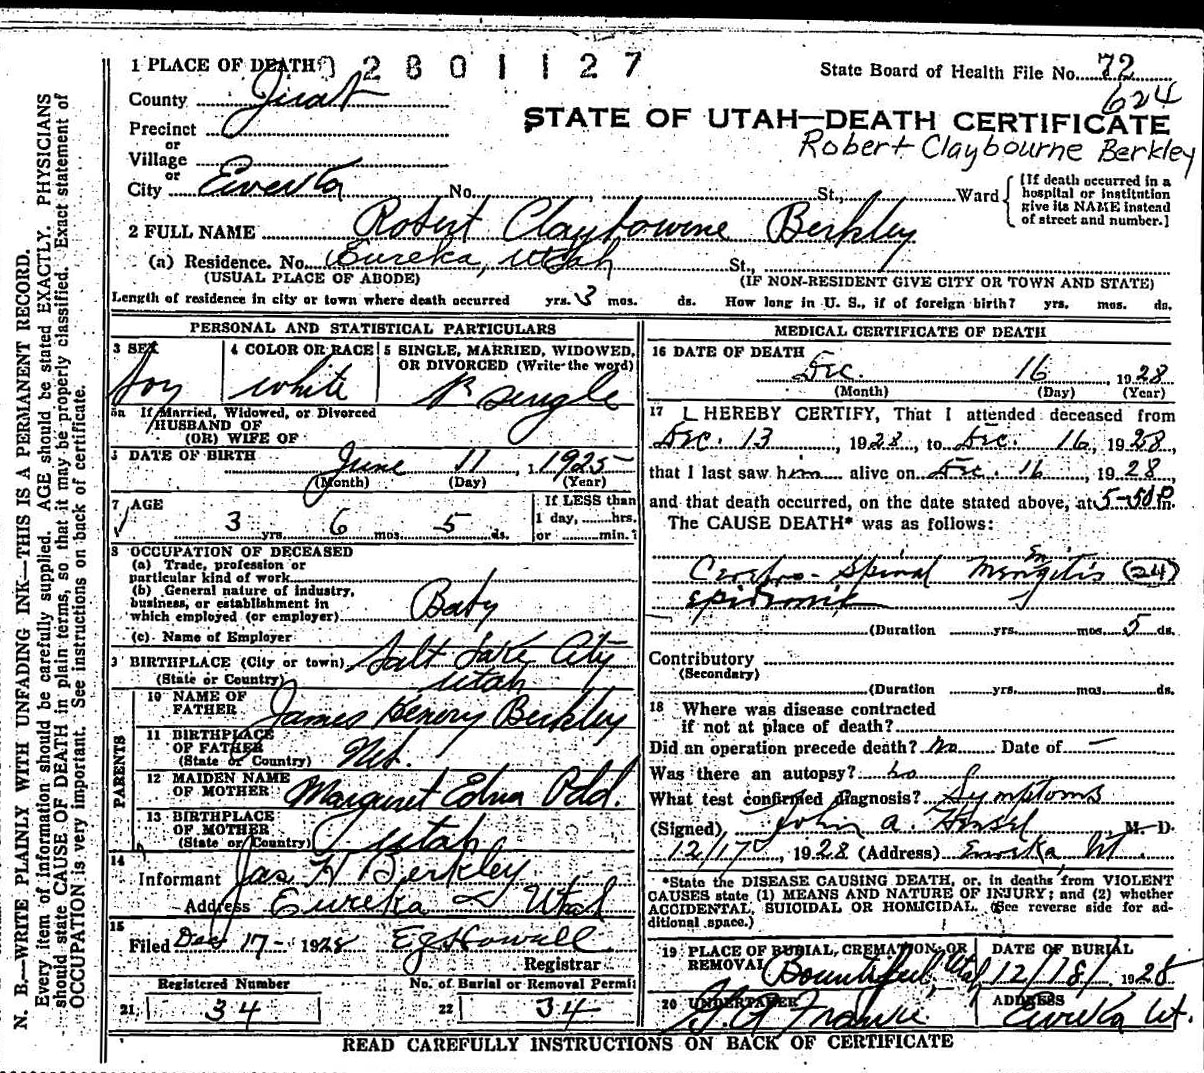 1 PLACE OF DEATH 0 2 8 0 1 1 2 7
State Board of Health File No. 72
624
County Juab
STATE OF UTAH—DEATH CERTIFICATE
Precinct
or
Robert Claybourne Berkley
Village
or
City Eureka No. , St., Ward {[If death occurred in a
hospital or institution
give its NAME instead
of street and number.]
2 FULL NAME Robert Claybourne Berkley
(a) Residence. No. Eureka, Utah St.,
(USUAL PLACE OF ABODE) (IF NON-RESIDENT GIVE CITY OR TOWN AND STATE)
Length of residence in city or town where death occurred yrs. 3 mos. ds. How long in U. S., if of foreign birth? yrs. mos. ds.
PERSONAL AND STATISTICAL PARTICULARS
3 SEX 4 COLOR OR RACE 5 SINGLE, MARRIED, WIDOWED,
OR DIVORCED (Write the word)
Boy white single
5a If Married, Widowed, or Divorced
HUSBAND OF
(OR) WIFE OF
DATE OF BIRTH June 11, 1925
(Month) (Day) (Year)
7 AGE If LESS than
1 day, hrs.
3 yrs. 6 mos. 5 ds. or min.?
8 OCCUPATION OF DECEASED
(a) Trade, profession or
particular kind of work
(b) General nature of industry,
business, or establishment in
which employed (or employer) Baby
(c) Name of Employer
9 BIRTHPLACE (City or town) Salt Lake City
(State or Country) Utah
PARENTS
10 NAME OF
FATHER James Henory Berkley
11 BIRTHPLACE
OF FATHER
(State or Country)
12 MAIDEN NAME
OF MOTHER Margaret Edna Odd.
13 BIRTHPLACE
OF MOTHER
(State or Country) Utah
14
Informant Jas H Berkley
Address Eureka Utah
15
Filed Dec 17- 1928
Registrar
Registered Number No. of Burial or Removal Permit
21 34 22 34
MEDICAL CERTIFICATE OF DEATH
16 DATE OF DEATH
Dec. 16, 1928
(Month) (Day) (Year)
17 I HEREBY CERTIFY, That I attended deceased from
Dec. 13, 1928, to Dec. 16, 1928,
that I last saw him alive on Dec. 16, 1928,
and that death occurred, on the date stated above, at 5-50 P.m.
The CAUSE DEATH* was as follows:
Cerebro-Spinal Meningitis (24)
Epidemic
(Duration yrs. mos. 5 ds.
Contributory
(Secondary)
(Duration yrs. mos. ds.
18 Where was disease contracted
if not at place of death?
Did an operation precede death? No Date of —
Was there an autopsy? no
What test confirmed diagnosis? Symptoms
(Signed) John A. Hensel M. D.
12/17, 1928 (Address) Eureka Ut.
*State the DISEASE CAUSING DEATH, or, in deaths from VIOLENT
CAUSES state (1) MEANS AND NATURE OF INJURY; and (2) whether
ACCIDENTAL, SUICIDAL OR HOMICIDAL. (See reverse side for ad-
ditional space.)
19 PLACE OF BURIAL, CREMATION, OR
REMOVAL Bountiful, Utah
DATE OF BURIAL
12/18/ 1928
20 UNDERTAKER
Franke.
ADDRESS
Eureka Ut.
READ CAREFULLY INSTRUCTIONS ON BACK OF CERTIFICATE
N. B.—WRITE PLAINLY WITH UNFADING INK—THIS IS A PERMANENT RECORD.
Every item of information should be carefully supplied. AGE should be stated EXACTLY. PHYSICIANS
should state CAUSE OF DEATH in plain terms, so that it may be properly classified. Exact statement of
OCCUPATION is very important. See instructions on back of certificate.